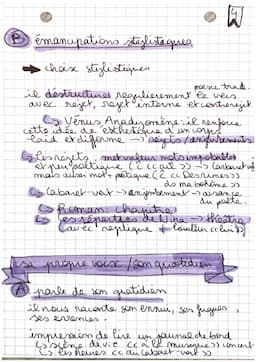 B émancipations stylistiques
→ choix stylistiques
poésie trad.
il destructure régulièrement le vers
avec rejet, rejet interne et contrerejet
↳ Vénus Anadyomène : il renforce
cette idée de esthétique d'un corps
laid et difforme → rejets / enjambements
↳ Les rejets : met valeur mots improbables
et peu poétique
mais aussi mot + poétique
↳ Cabaret-vert → enjambement → aisance
du poète.
↳ Roman : chapitre
↳ Les réparties de Nina → théâtre
(avec réplique + Lui)
sa propre voix / son quotidien
A parle de son quotidien
il nous raconte son ennui, ses fugues,
ses errances.
impression de lire un journal de bord
↳ scène de vie << à la musique >> concert
↳ les heures << au cabaret-vert >>